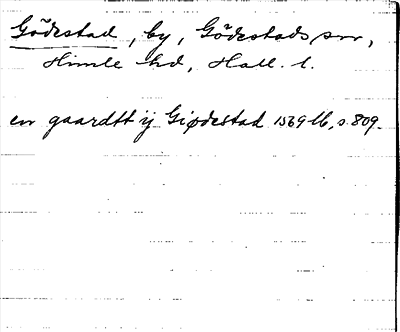 Gödestad, by, Gödestads sn,
Himle hd, Hall. l.
en gaardtt ij Giødestad 1569 lb, s. 809.